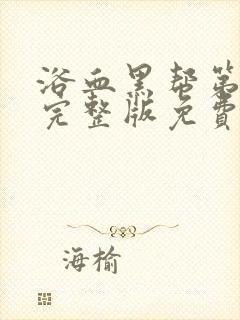 浴血黑帮第
完整版免费
海榆